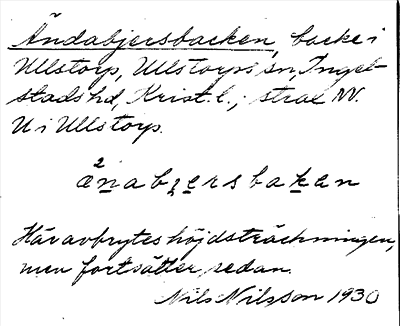 Ändabjersbacken, backe i
Ullstorp, Ullstorps sn, Ingel-
stads hd, Krist. l.; strax NV.
U i Ullstorp.
Här avbrytes höjdsträckningen,
men fortsätter sedan.
Nils Nilsson 1930